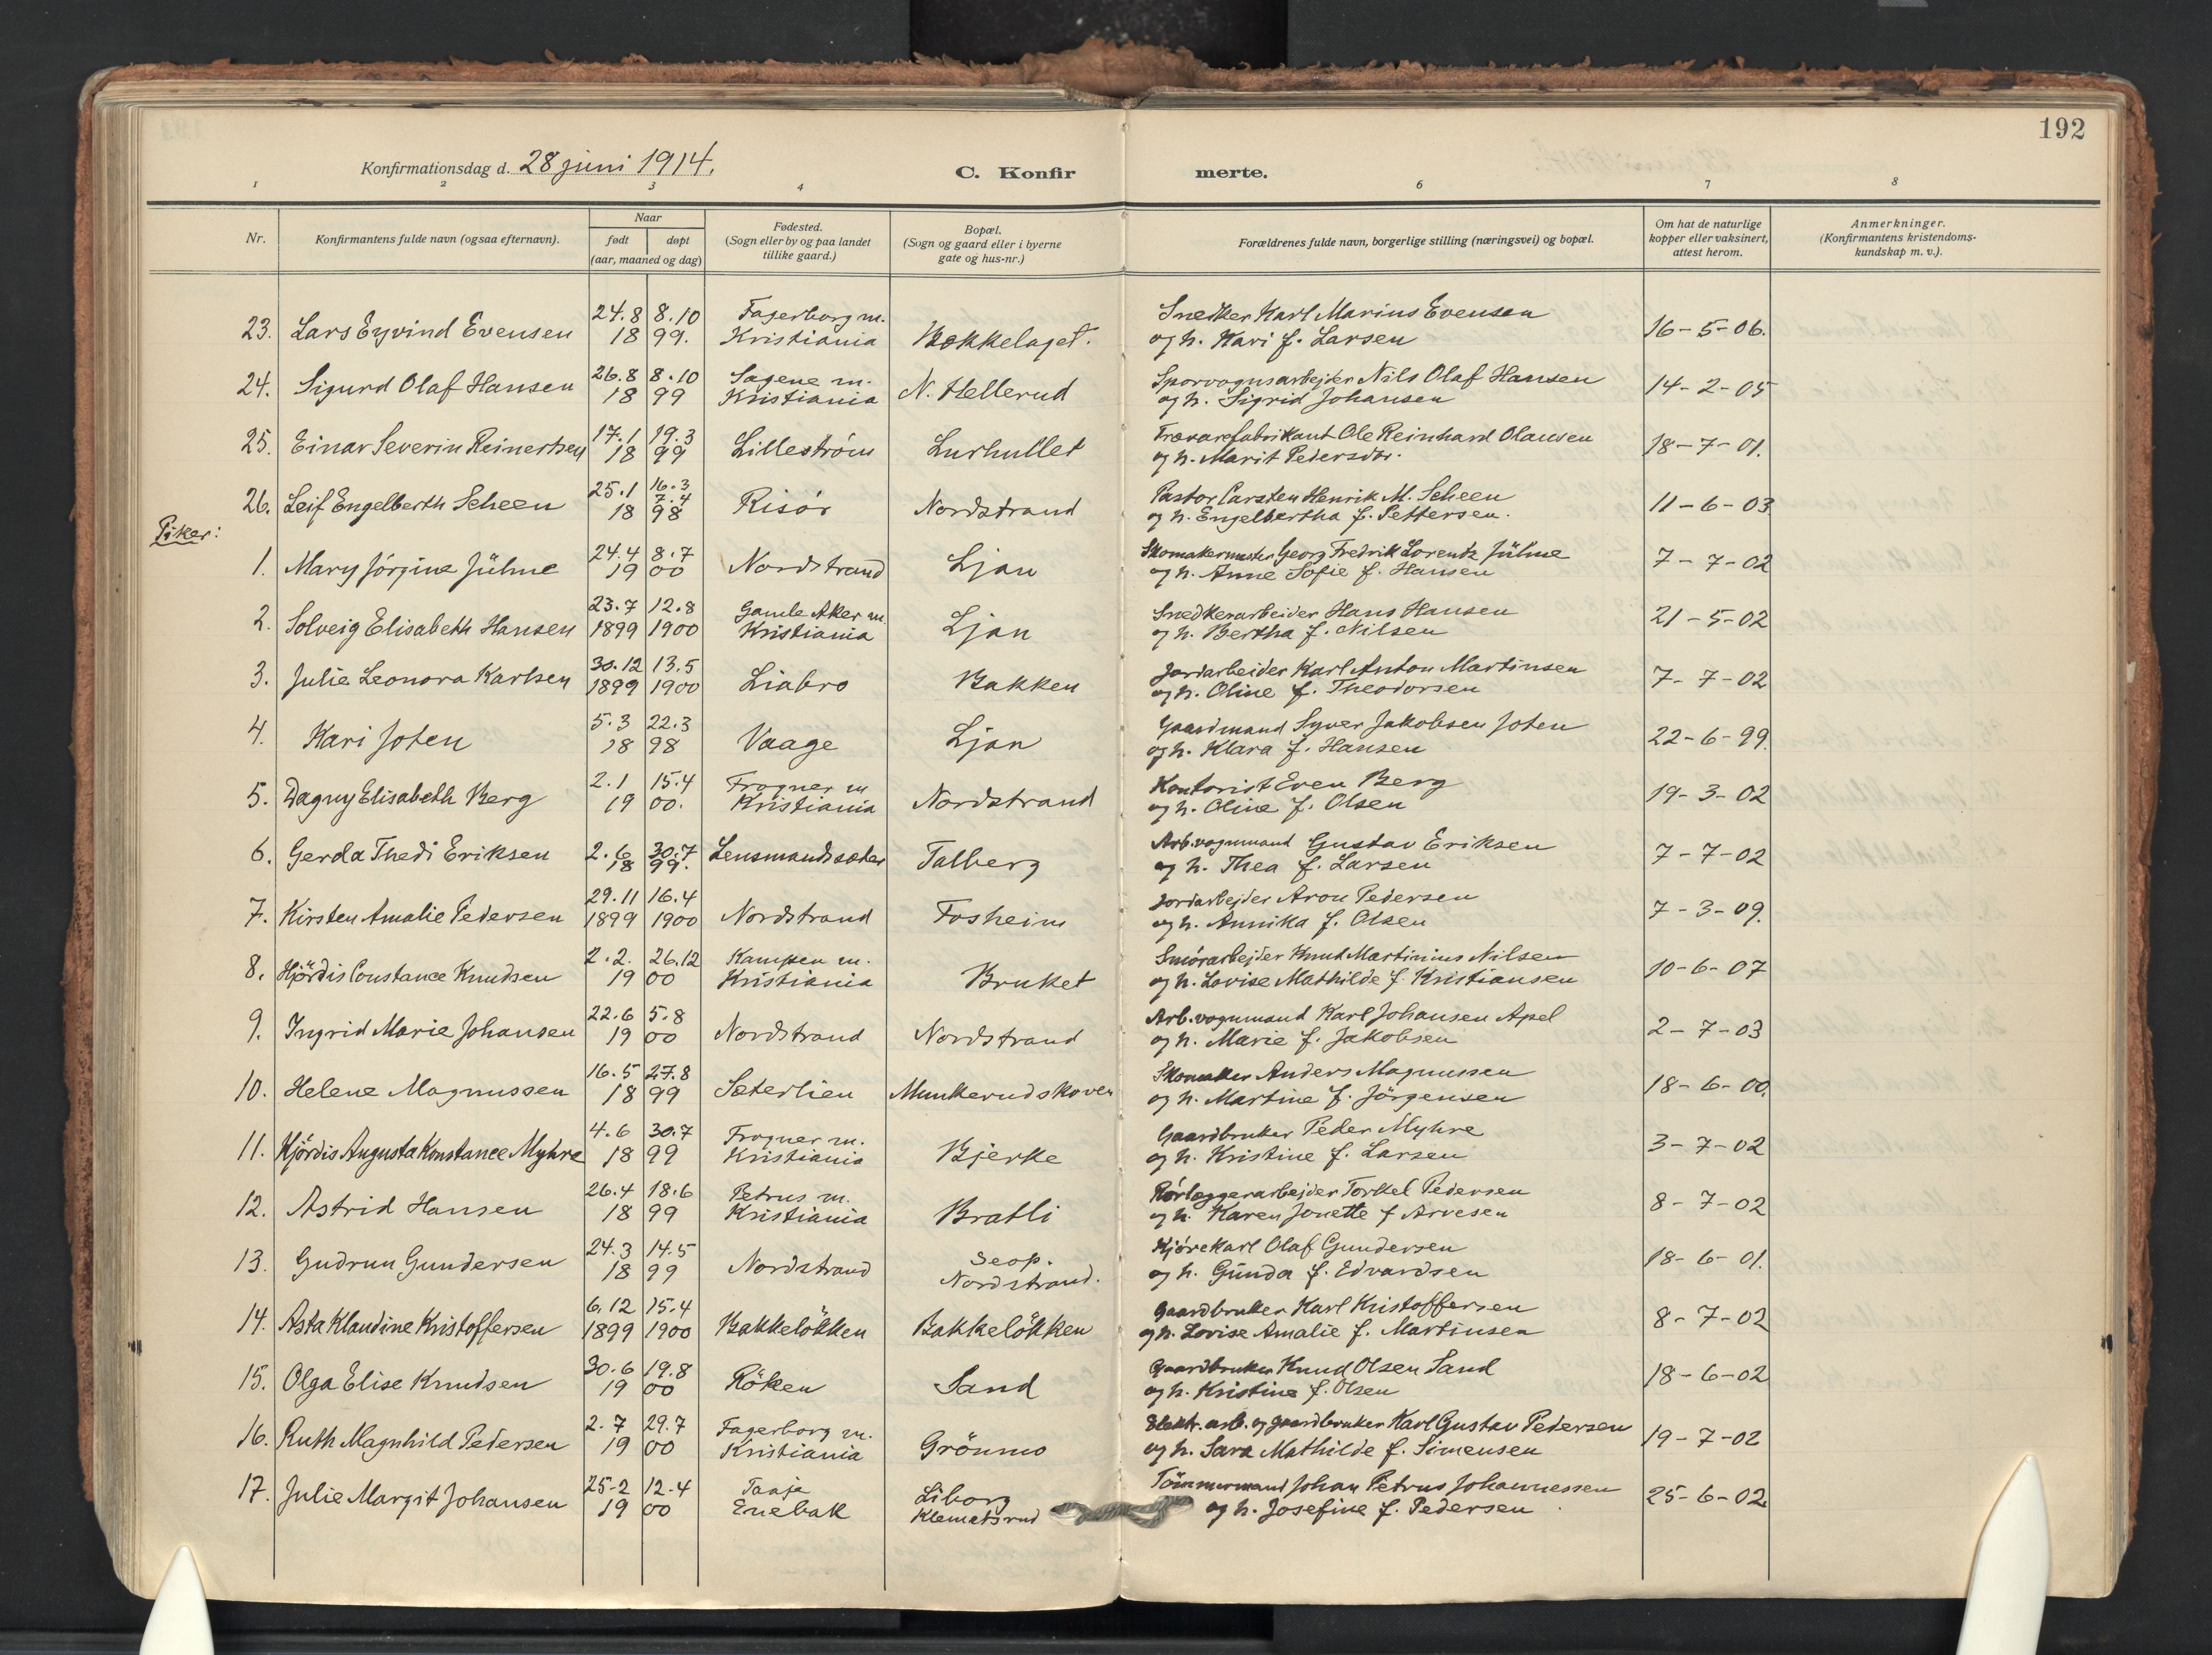 192
Konfirmationsdag d. 28 juni 1914.
C. Konfirmerte.
1 2 3 4 6 7 8
Nr.
Konfirmantens fulde navn (ogsaa efternavn).
Naar
født døpt
(aar, maaned og dag)
Fødested.
(Sogn eller by og paa landet
tillike gaard.)
Bopæl.
(Sogn og gaard eller i byerne
gate og hus-nr.)
Forældrenes fulde navn, borgerlige stilling (næringsvei) og bopæl.
Om hat de naturlige
kopper eller vaksinert,
attest herom.
Anmerkninger.
(Konfirmantens kristendoms-
kundskap m. v.).
24.8 8.10 Fagerborg m. Snedker Karl Marius Evensen
23. Lars Eyvind Evensen 18 99. Kristiania Bekkelaget. og h. Kari f. Larsen 16-5-06.
26.8 8.10 Sagene m. Sporvognsarbejder Nils Olaf Hansen
24. Sigurd Olaf Hansen 18 99 Kristiania N. Hellerud og h. Sigrid Johansen 14-2-05
17.1 19.3 Trævarefabrikant Ole Reinhard Olausen
25. Einar Severin Reinertsen 18 99 Lilleström Lurhullet og h. Marit Pedersdtr. 18-7-01.
25.1 16.3 7.4 Pastor Carsten Henrik M. Scheen
26. Leif Engelberth Scheen 18 98 Risör Nordstrand og h. Engelbertha f. Pettersen. 11-6-03
Piker:
24.4 8.7 Skomakermester Georg Fredrik Lorentz Jühne
1. Mary Jörgine Jühne 19 00 Nordstrand Ljan og h. Anne Sofie f. Hansen 7-7-02
23.7 12.8 Gamle Aker m. Snedkerarbeider Hans Hansen
2. Solveig Elisabeth Hansen 1899 1900 Kristiania Ljan og h. Bertha f. Nilsen 21-5-02
30.12 13.5 Jordarbeider Karl Anton Martinsen
3. Julie Leonora Karlsen 1899 1900 Liabro Bakken og h. Oline f. Theodorsen 7-7-02
5.3 22.3 Gaardmand Syver Jakobsen Joten
4. Kari Joten 18 98 Vaage Ljan og h. Klara f. Hansen 22-6-99.
2.1 15.4 Frogner m Kontorist Even Berg
5. Dagny Elisabeth Berg 19 00. Kristiania Nordstrand og h. Oline f. Olsen 19-3-02
2.6 30.7 Arb.vognmand Gustav Eriksen
6. Gerda Thedi Eriksen 18 99. Lensmandsæter Talberg og h. Thea f. Larsen 7-7-02
29.11 16.4 Jordarbejder Aron Pedersen
7. Kirsten Amalie Pedersen 1899 1900 Nordstrand Fosheim og h. Annika f. Olsen 7-3-09.
2.2. 26.12 Kampen m. Smörarbejder Knut Martinius Nilsen
8. Hjördis Constance Knudsen 19 00 Kristiania Bruket og h. Lovise Mathilde f. Kristiansen 10-6-07
22.6 5.8 Arb.vognmand Karl Johansen Apel
9. Ingrid Marie Johansen 19 00 Nordstrand Nordstrand og h. Marie f. Jakobsen 2-7-03
16.5 27.8 Skomaker Anders Magnussen
10. Helene Magnussen 18 99 Sæterlien Munkerudskoven og h. Martine f. Jörgensen 18-6-00.
4.6 30.7 Frogner m. Gaardbruker Peder Myhre
11. Hjördis Augusta Konstance Myhre 18 99 Kristiania Bjerke og h. Kristine f. Larsen 3-7-02
26.4 18.6 Petrus m. Rörlæggerarbejder Torkel Pedersen
12. Astrid Hansen 18 99 Kristiania Bratli og h. Karen Jonette f Arvesen 8-7-02
24.3 14.5 Seop. Kjörekarl Olaf Gundersen
13. Gudrun Gundersen 18 99 Nordstrand Nordstrand. og h. Gunda f. Edvardsen 18-6-01.
6.12 15.4 Gaardbruker Karl Kristoffersen
14. Asta Klaudine Kristoffersen 1899 1900 Bakkelökken Bakkelökken og h. Lovise Amalie f. Martinsen 8-7-02
30.6 19.8 Gaardbruker Knud Olsen Sand
15. Olga Elise Knudsen 19 00 Röken Sand og h. Kristine f. Olsen 18-6-02
2.7 29.7 Fagerborg m. Elektr. arb. og gaardbruker Karl Gustav Pedersen
16. Ruth Magnhild Pedersen 19 00 Kristiania Grönmo og h. Sara Mathilde f. Simensen 19-7-02
25-2 12-4 Taaje Liborg Tömmermand Johan Petrus Johannessen
17. Julie Margit Johansen 19 00 Enebak Klemetsrud og h. Josefine f. Pedersen 25-6-02.